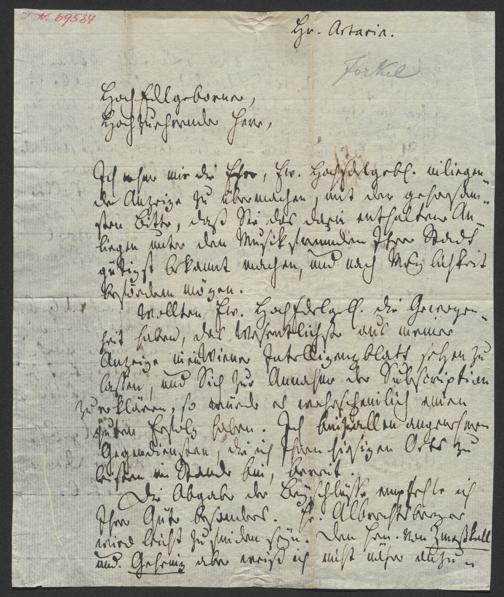 I. N. 69534
Hr. Artaria.
Forkel
HochEdelgeborner,
Hochzuehrender Herr,
Ich nehme mir die Ehre, Ew. HochEdelgebl. einliegen-
de Anzeige zu übermachen, mit der gehorsam-
sten Bitte, daß Sie das darin enthaltene An-
liegen unter den Musikfreunden Ihrer Stadt
gütigst bekannt machen, und nach Möglichkeit
befördern mögen.
Wollten Ew. HochEdelgeb. die Gewogen-
heit haben, das Wesentlichste aus meiner
Anzeige ins Wiener Intelligenzblatt setzen zu
lassen, und Sich zur Annahme der Subscription
zu erklären, so würde es wahrscheinlich einen
guten Erfolg haben. Ich bin zu allen angenehmen
Gegendiensten, die ich Ihnen hiesigen Orts zu
leisten im Stande bin, bereit.
Die Abgabe der Beyschlüsse empfehle ich
Ihrer Güte besonders. Hr. Albrechtsberger
wird leicht zu finden seyn. Den Hrn. von Zmeskall
und Gehring aber weiß ich nicht näher anzu-